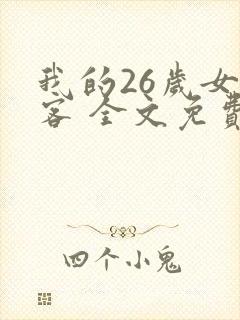 我的26歲女
客 全文免費
四个小鬼